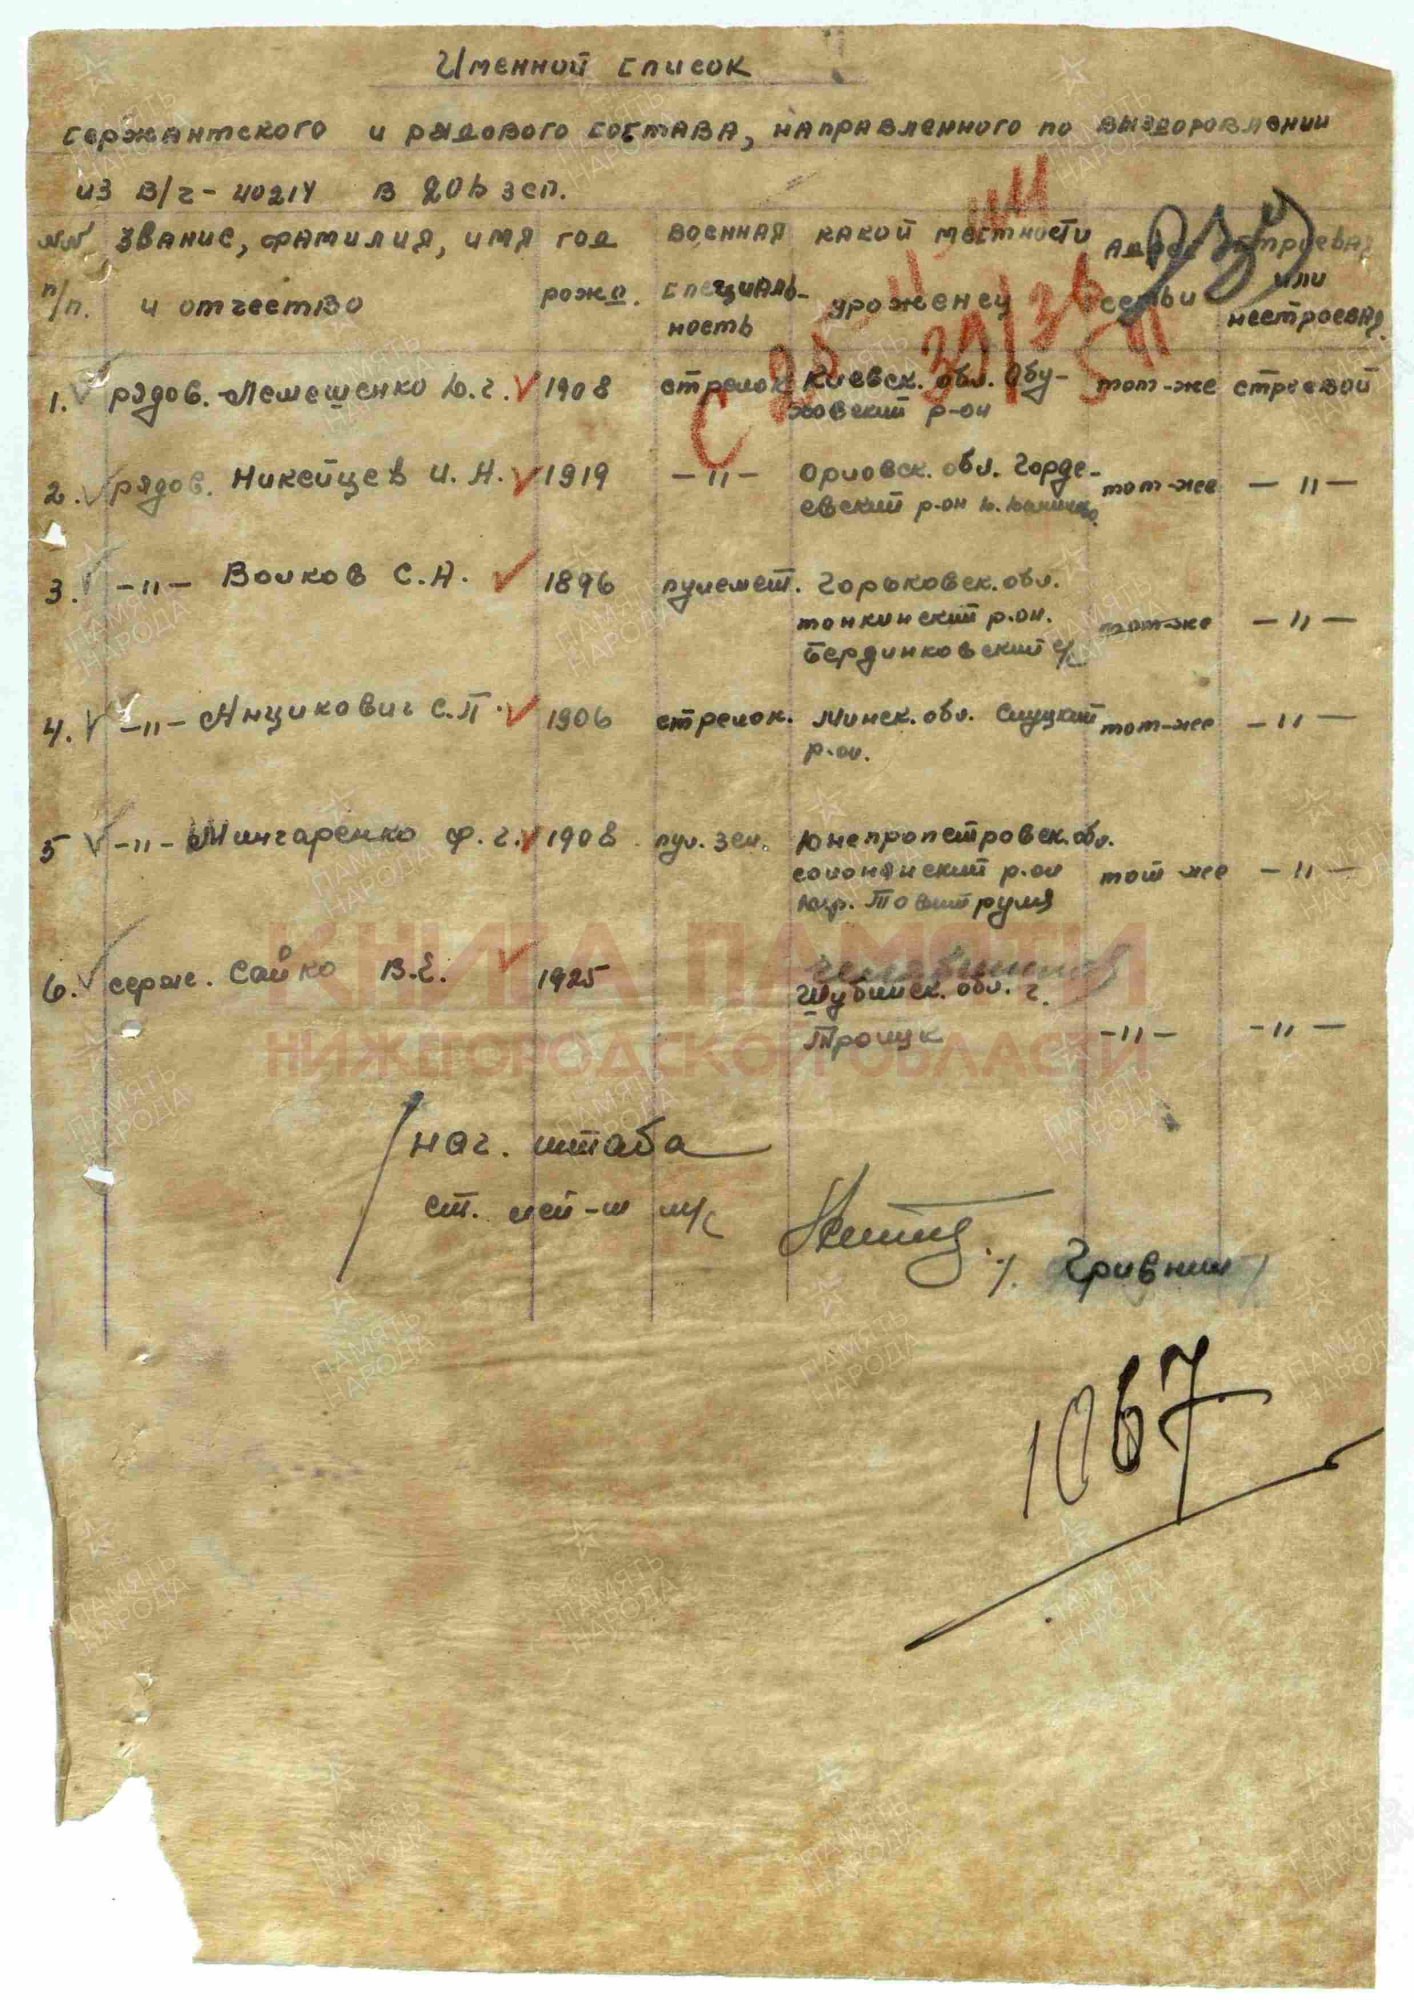 Именной список
сержантского и рядового состава, направленного по выздоровлении
из в/ч - 40214 в 206 зсп.
№№ п/п. | Звание, фамилия, имя и отчество | год рожд. | военная специаль-ность | какой местности уроженец | адрес семьи | строевая или нестроевая.
1. рядов. Лемешенко Ю.Г. 1908 стрелок Киевск. обл. Обу- тот-же строевой
ховский р-он
2. рядов. Никейцев И. Н. 1919 - " - Орловск. обл. Горде- тот-же - " -
евский р-он
3. - " - Волков С.А. 1896 пулемет. Горьковск. обл.
тонкинский р-он. тот-же - " -
Бердинковский с/с
4. - " - Анцикович С.П. 1906 стрелок. Минск. обл. Слуцкий тот-же - " -
р-он.
5 - " - Мингаренко Ф.Г. 1908 пул. зен. Днепропетровск. обл.
солонянский р-он тот же - " -
6. серж. Сайко В.Е. 1925
обл. г.
Троицк - " - - " -
нач. штаба
ст. лей-т м/с
/ Гривнин /
1067
КНИГА ПАМЯТИ
НИЖЕГОРОДСКОЙ ОБЛАСТИ
ПАМЯТЬ
НАРОДА